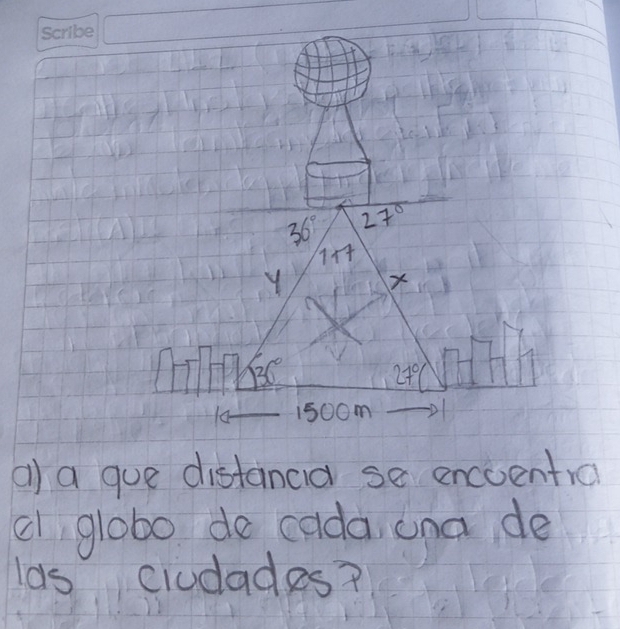 Scribe
36° 27°
117
y x
36° 27°
1500m
a) a que distancia se encuentra
el globo de cada una de
las ciudades?